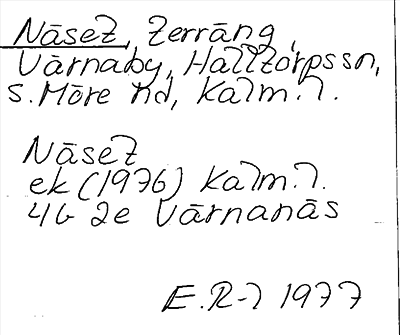 Näset, Terräng,
Värnaby, Halltorps sn,
S. Möre hd, Kalm. l.
Näset
ek (1976) Kalm. l.
4G 2e Värnanäs
E. R-l 1977